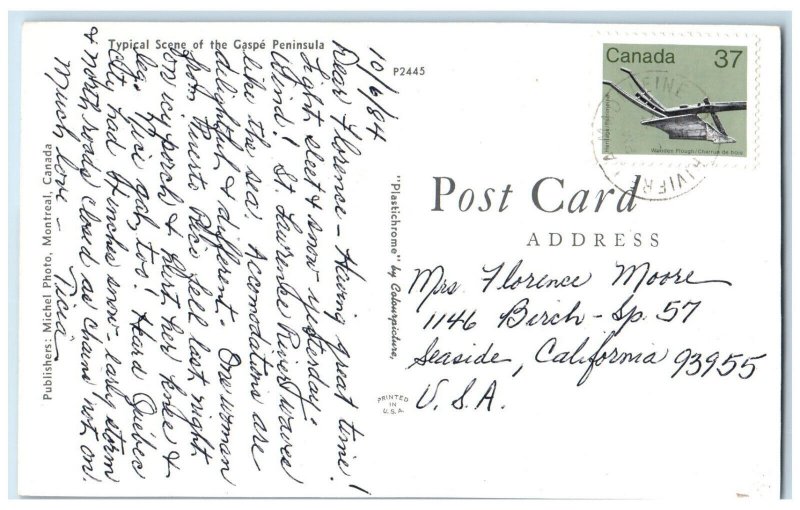 Typical Scene of the Gaspé Peninsula
P2445
10/6/84
Dear Florence - Having great time!
Light sleet & snow yesterday.
Wind! St. Lawrence River waves
like the sea. Accomodations are
delightful & different. One woman
from Puerto Rico fell last night
on icy porch & hurt her knee &
leg. Nice gal, too! Heard Quebec
City had 4 inches snow - early storm
& north roads closed as chains not on.
Much love -
Publishers: Michel Photo, Montreal, Canada
"Plastichrome" by Colourpicture,
PRINTED
IN
U.S.A.
Canada 37
Heritage/Patrimoine
Wooden Plough/Charrue de bois
Post Card
ADDRESS
Mrs Florence Moore
1146 Birch - Sp. 57
Seaside, California 93955
U.S.A.